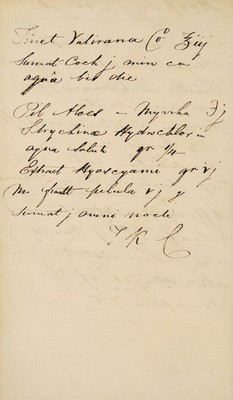 Tinct Valirana Co ʒiij
Sumat Coch j min cu
aqua bis die
Pil Aloes — Myrrha Ʒj
Strychinæ Hydrochlor in
aqua Solut gr 1/4
Extract Hyoscyami gr vj
M. fiatt pilula vj y
sumat j omni nocti